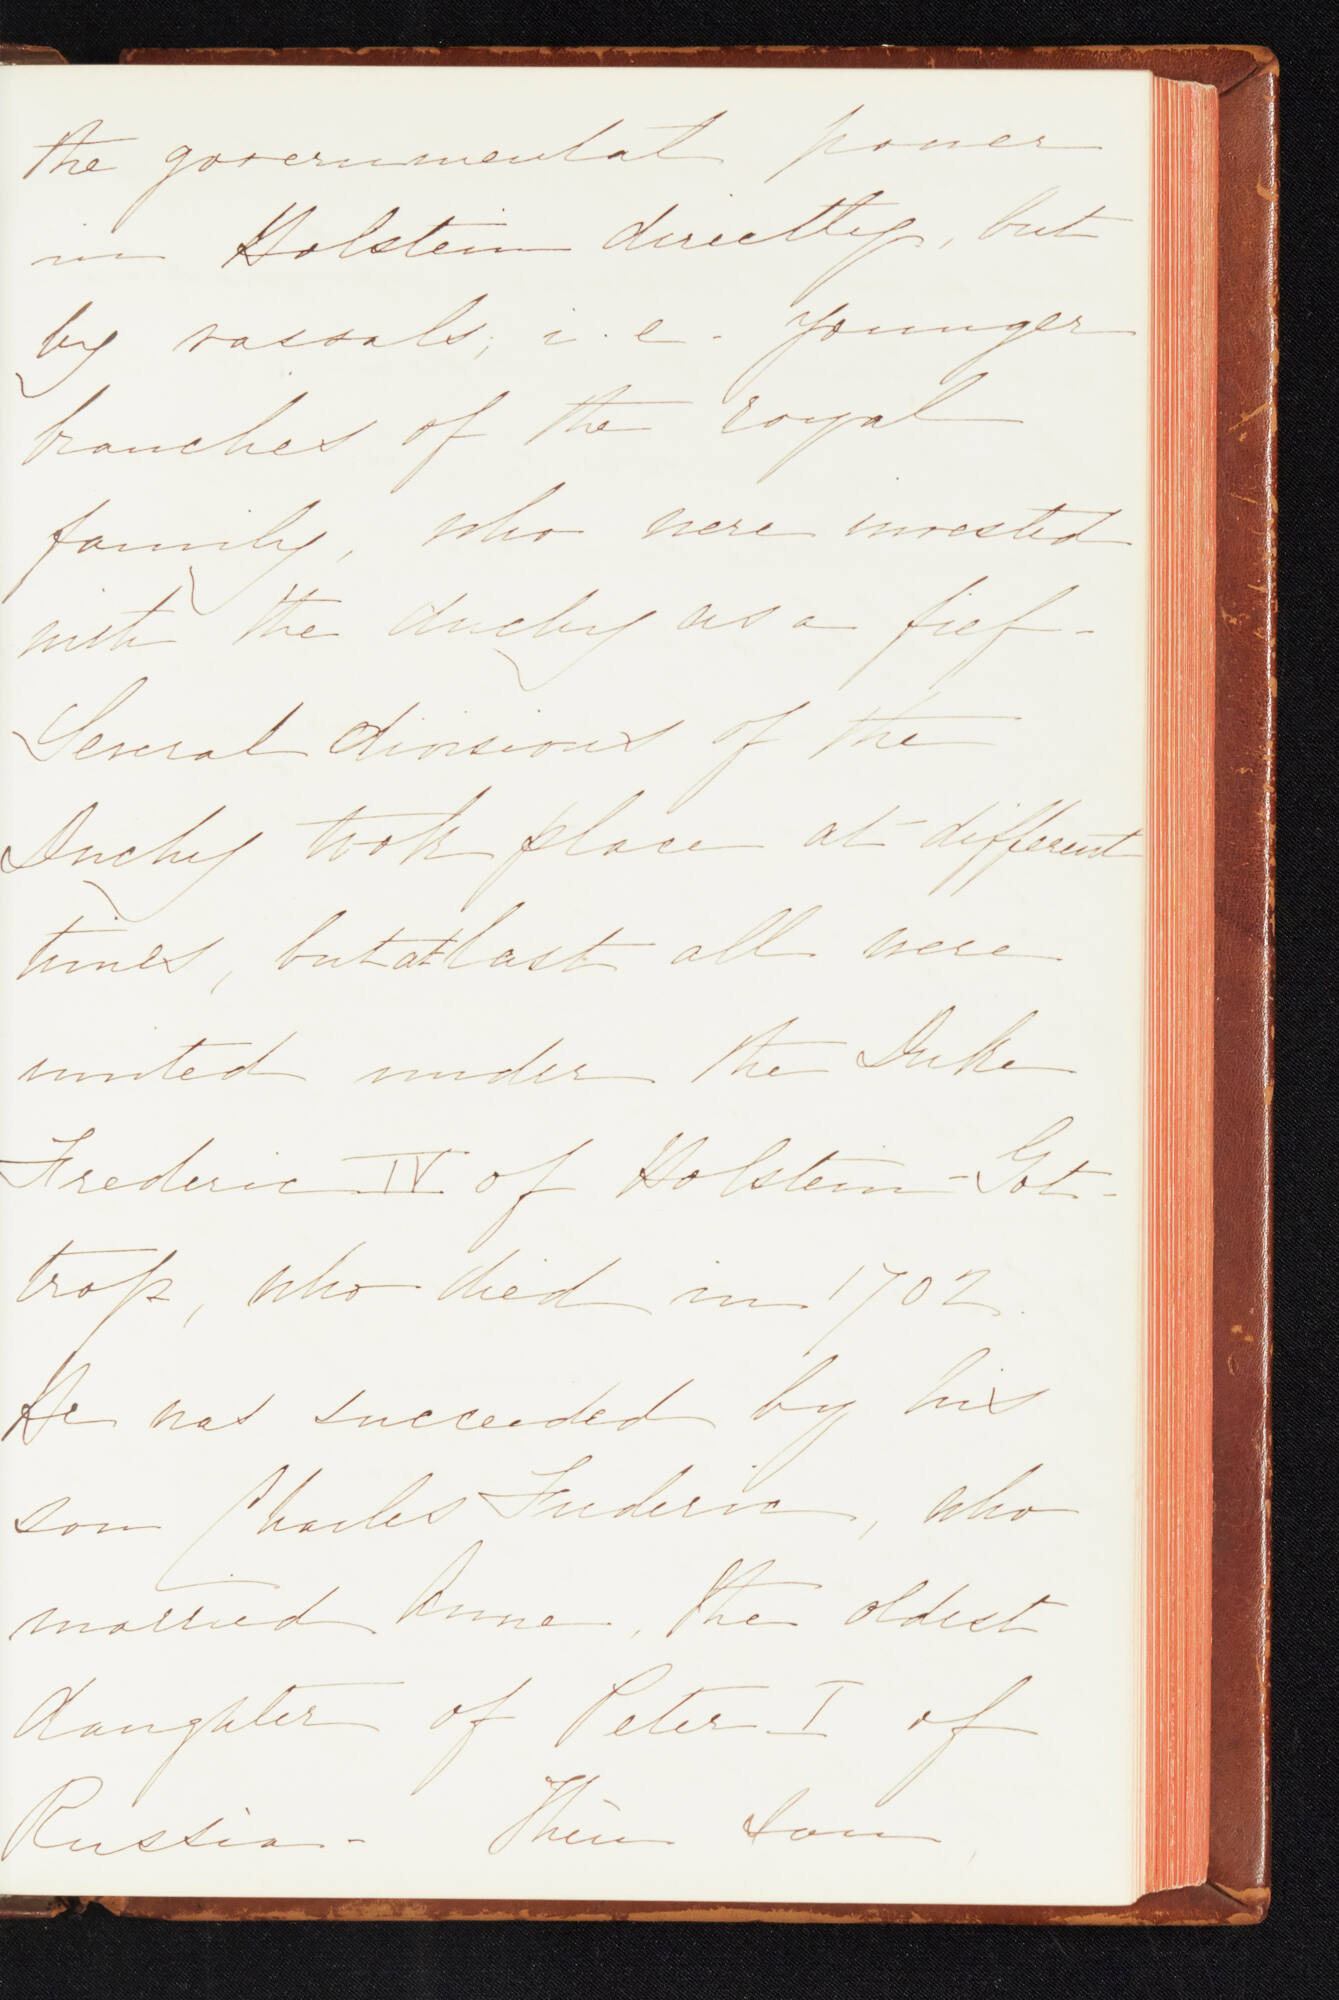 the governmental power
in Holstein directly, but
by vassals, i.e. younger
branches of the royal
family, who were invested
with the duchy as a fief -
Several divisions of the
Duchy took place at different
times, but at last all were
united under the Duke
Frederic IV of Holstein-Got-
trop, who died in 1702.
He was succeeded by his
son Charles Frederic, who
married Anne, the oldest
daughter of Peter I of
Russia - Their son,